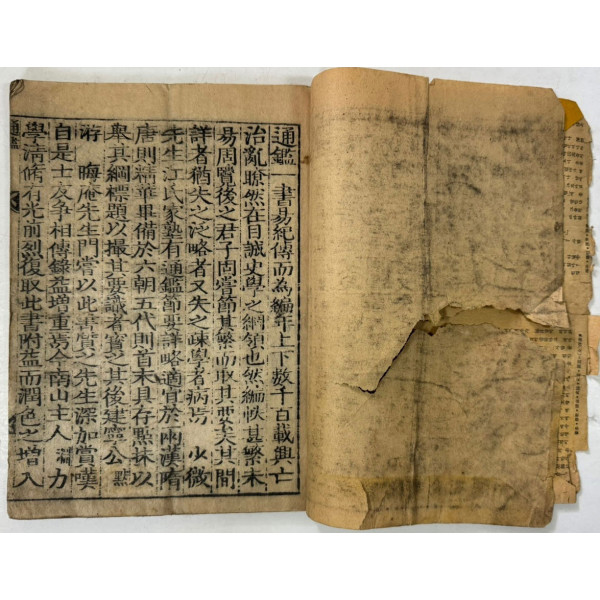 通鑑一書易紀傳而為編年上下数千百載興亡
治亂瞭然在目誠史學之綱領也然編帙甚繁未
易周覽後之君子固嘗節其繁而取其要矣其間
詳者猶失之泛略者又失之疎學者病焉 少微
先生江氏家塾有通鑑節要詳略適宜於兩漢隋
唐則精華畢備於六朝五代則首末具存點抹以
舉其綱標題以撮其要識者寶之其後建寧公點
游 晦庵先生門嘗以此書質之先生深加賞嘆
自是士友爭相傳錄益增重焉今南山主人淵力
學清脩有光前烈復取此書附益而潤色之增入
通鑑